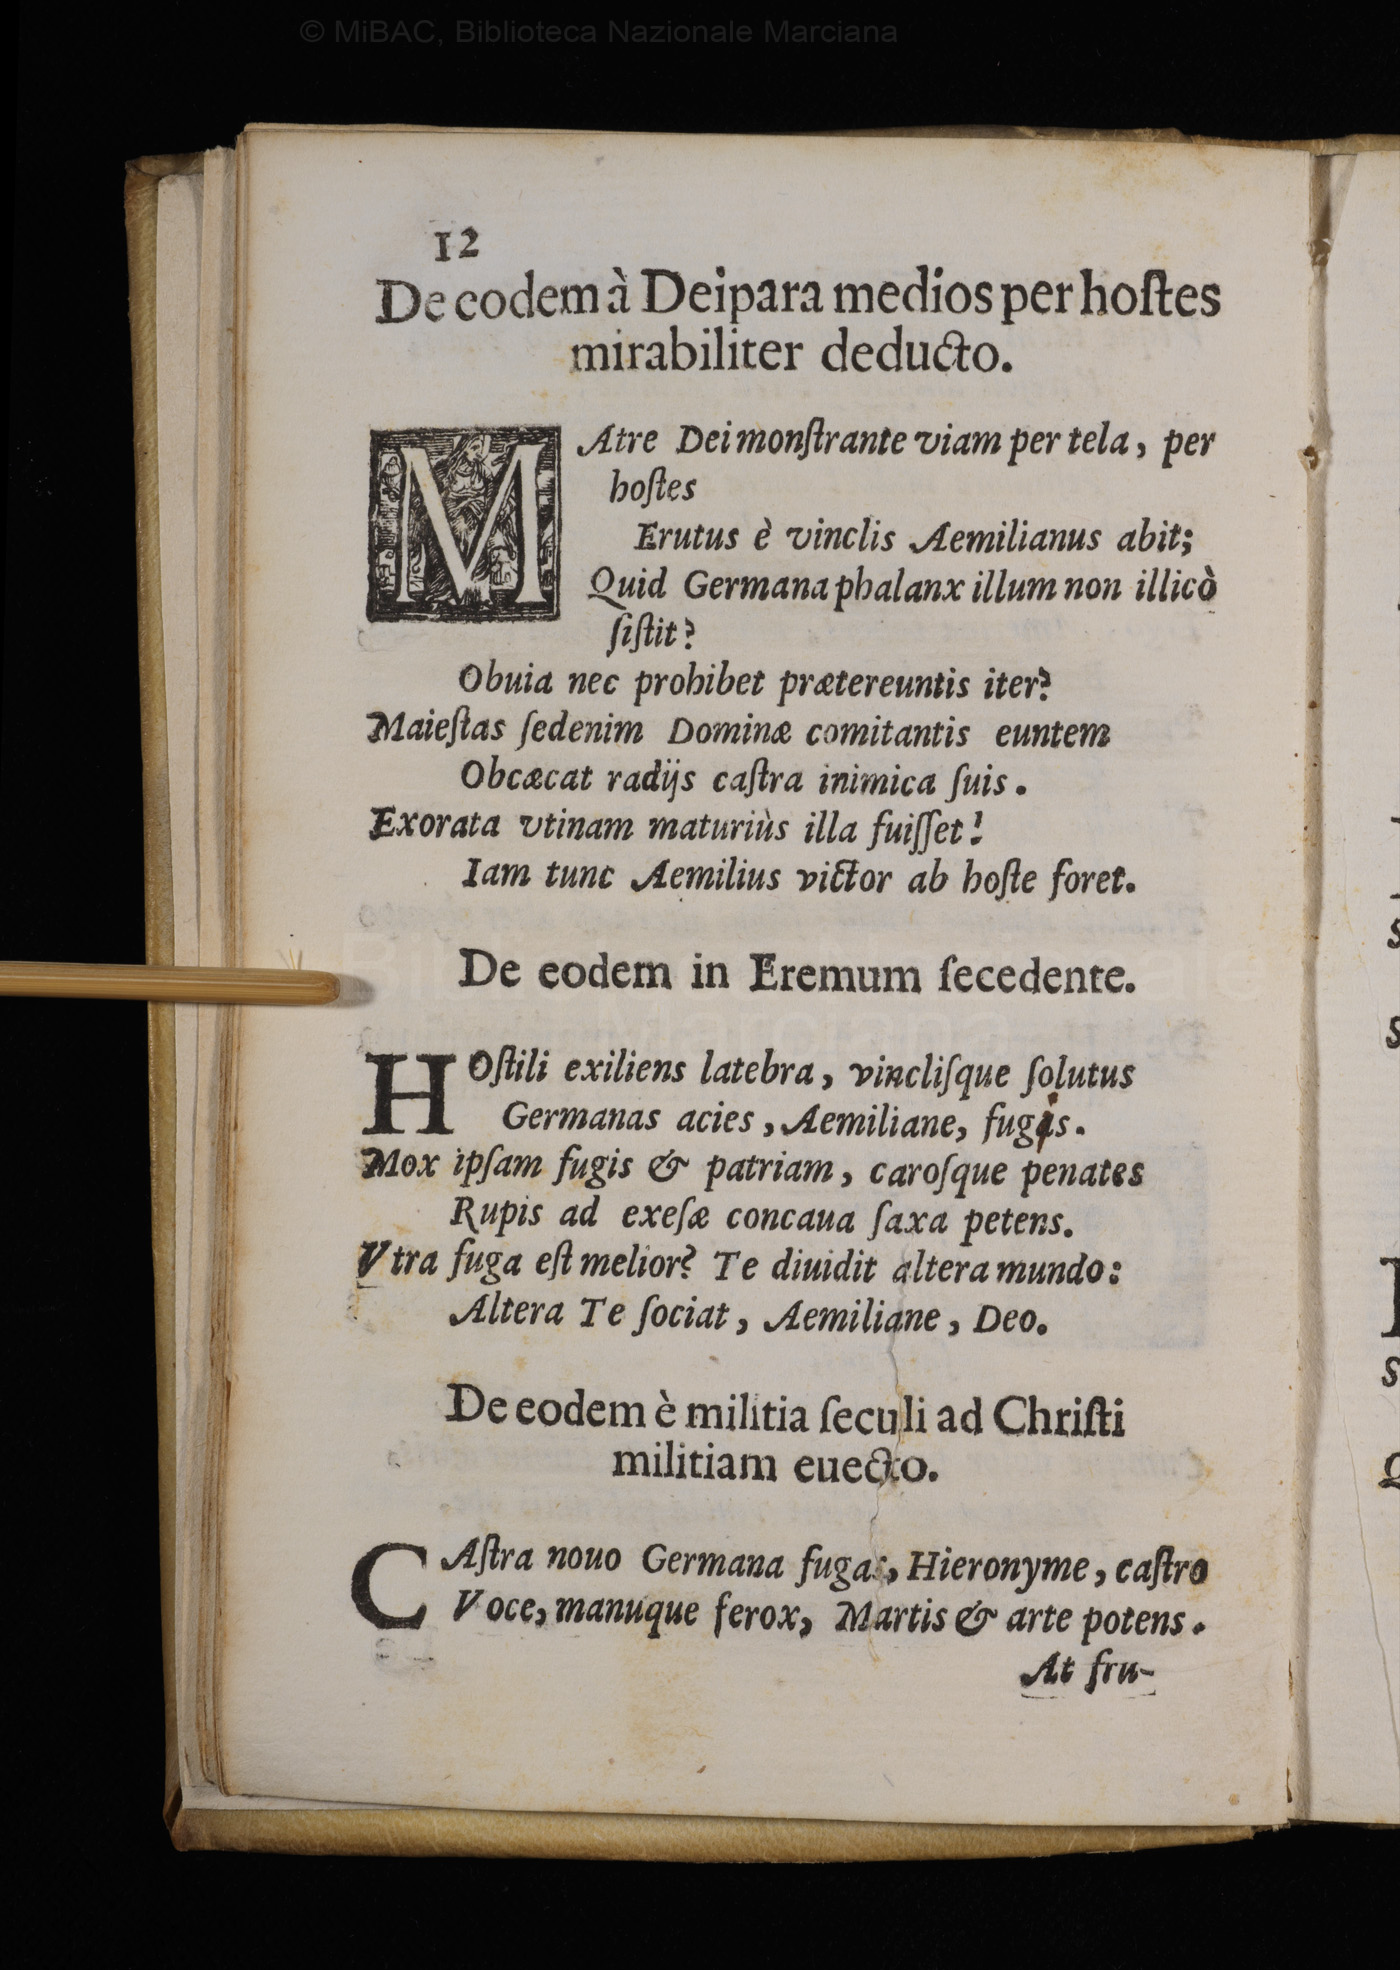 © MiBAC, Biblioteca Nazionale Marciana
12
De eodem à Deipara medios per hoſtes
mirabiliter deducto.
MAtre Dei monſtrante viam per tela, per
hoſtes
Erutus è vinclis Aemilianus abit;
Quid Germana phalanx illum non illicò
ſiſtit?
Obuia nec prohibet prætereuntis iter?
Maieſtas ſedenim Dominæ comitantis euntem
Obcæcat radijs caſtra inimica ſuis.
Exorata vtinam maturiùs illa fuiſſet!
Iam tunc Aemilius victor ab hoſte foret.
De eodem in Eremum ſecedente.
HOſtili exiliens latebra, vincliſque ſolutus
Germanas acies, Aemiliane, fugis.
Mox ipſam fugis & patriam, caroſque penates
Rupis ad exeſæ concaua ſaxa petens.
Vtra fuga eſt melior? Te diuidit altera mundo:
Altera Te ſociat, Aemiliane, Deo.
De eodem è militia ſeculi ad Chriſti
militiam euecto.
CAſtra nouo Germana fugas, Hieronyme, caſtro
Voce, manuque ferox, Martis & arte potens.
At fru-